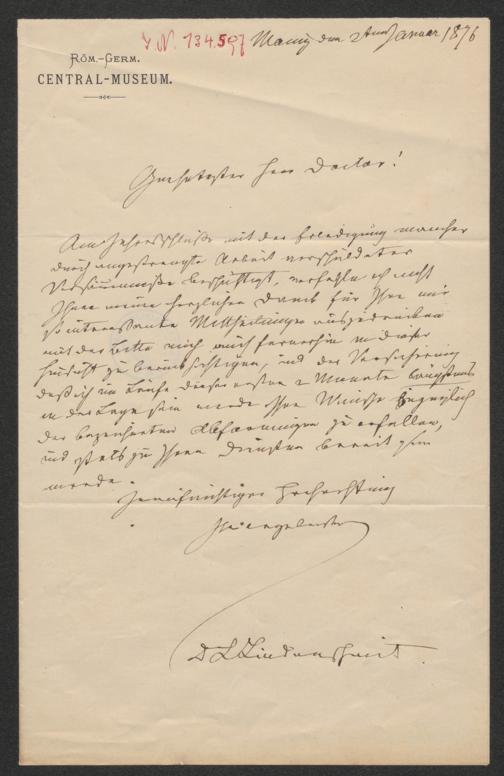 I. N. 134.597 Mainz den 2ten Januar 1876
RÖM.-GERM.
CENTRAL-MUSEUM.
Geehrtester Herr Doctor!
Am Jahresschluße mit der Erledigung mancher
durch angestrengte Arbeit verschuldeter
Versäumniße beschäftigt, verfehle ich nicht
Ihnen meinen herzlichen Dank für Ihre mir
so interessanten Mittheilungen auszudrücken
mit der Bitte mich auch fernerhin in dieser
Hinsicht zu berücksichtigen, und der Versicherung
daß ich im Laufe dieser ersten 2 Monate längstens
in der Lage sein werde Ihre Wünsche bezüglich
der bezeichneten Abformungen zu erfüllen,
und stets zu Ihren Diensten bereit sein
werde.
In aufrichtiger Hochachtung
Ihr ergebenster
D L Lindenschmit